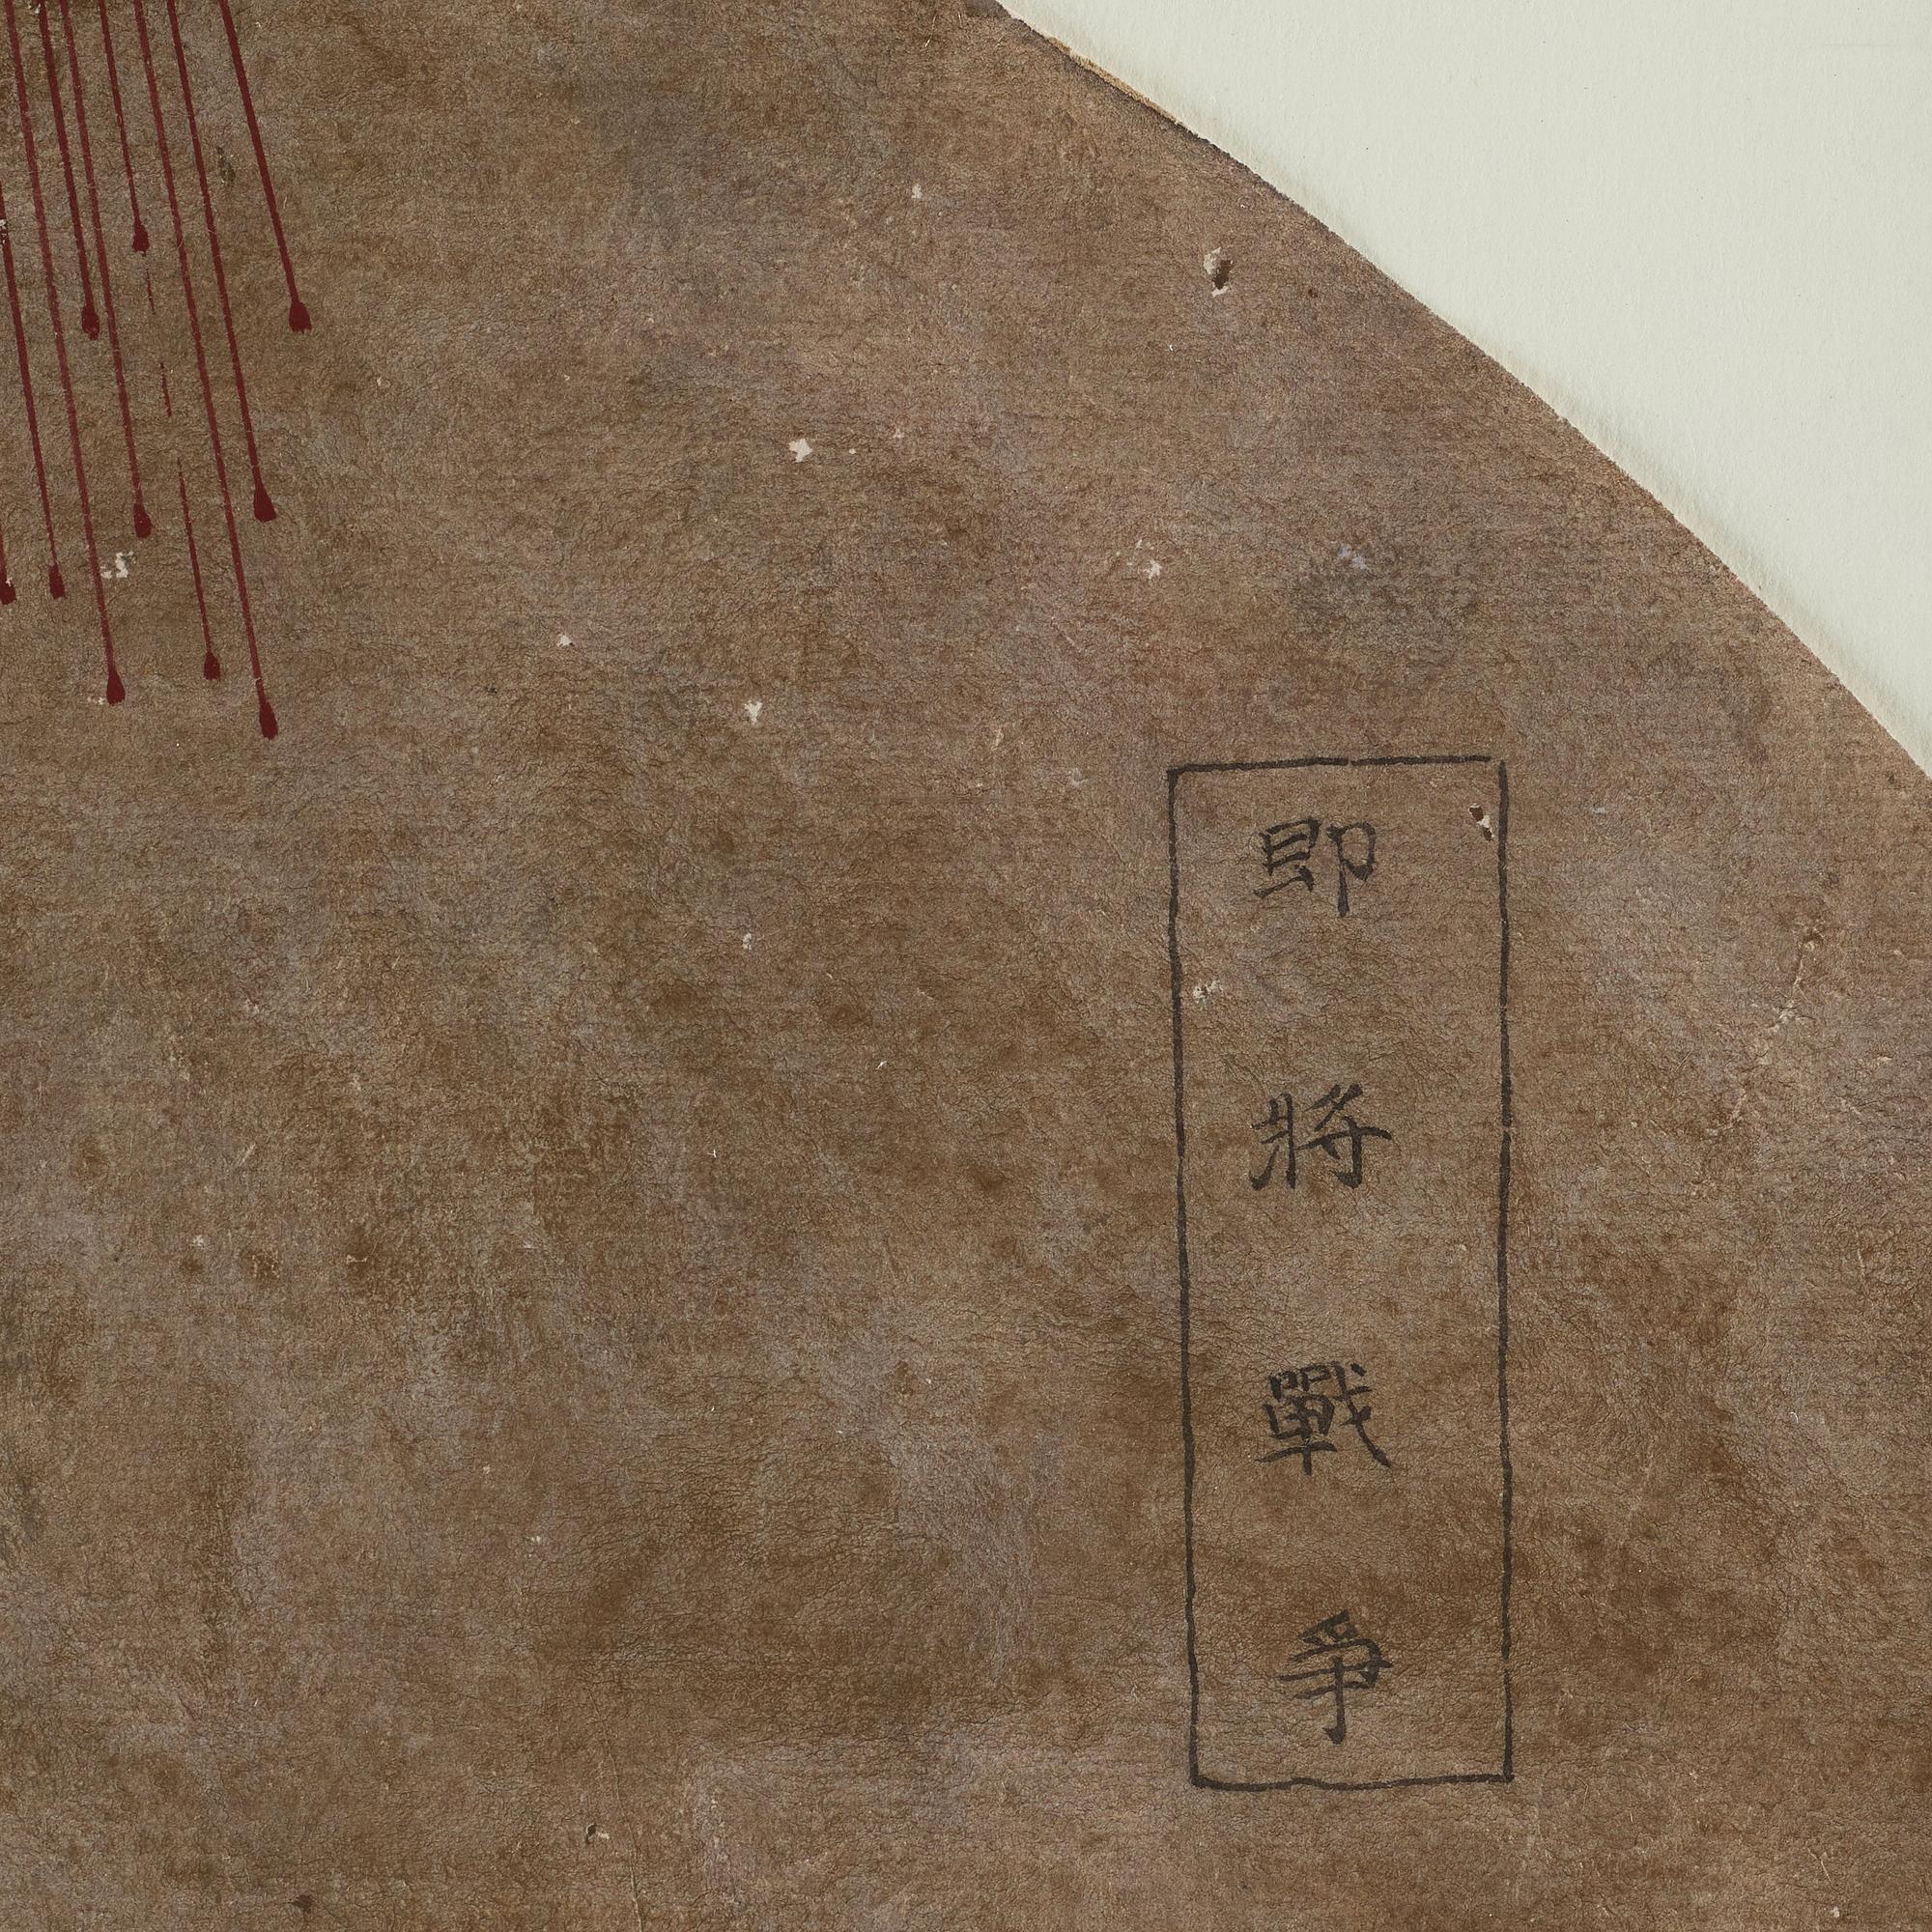 即將戰爭